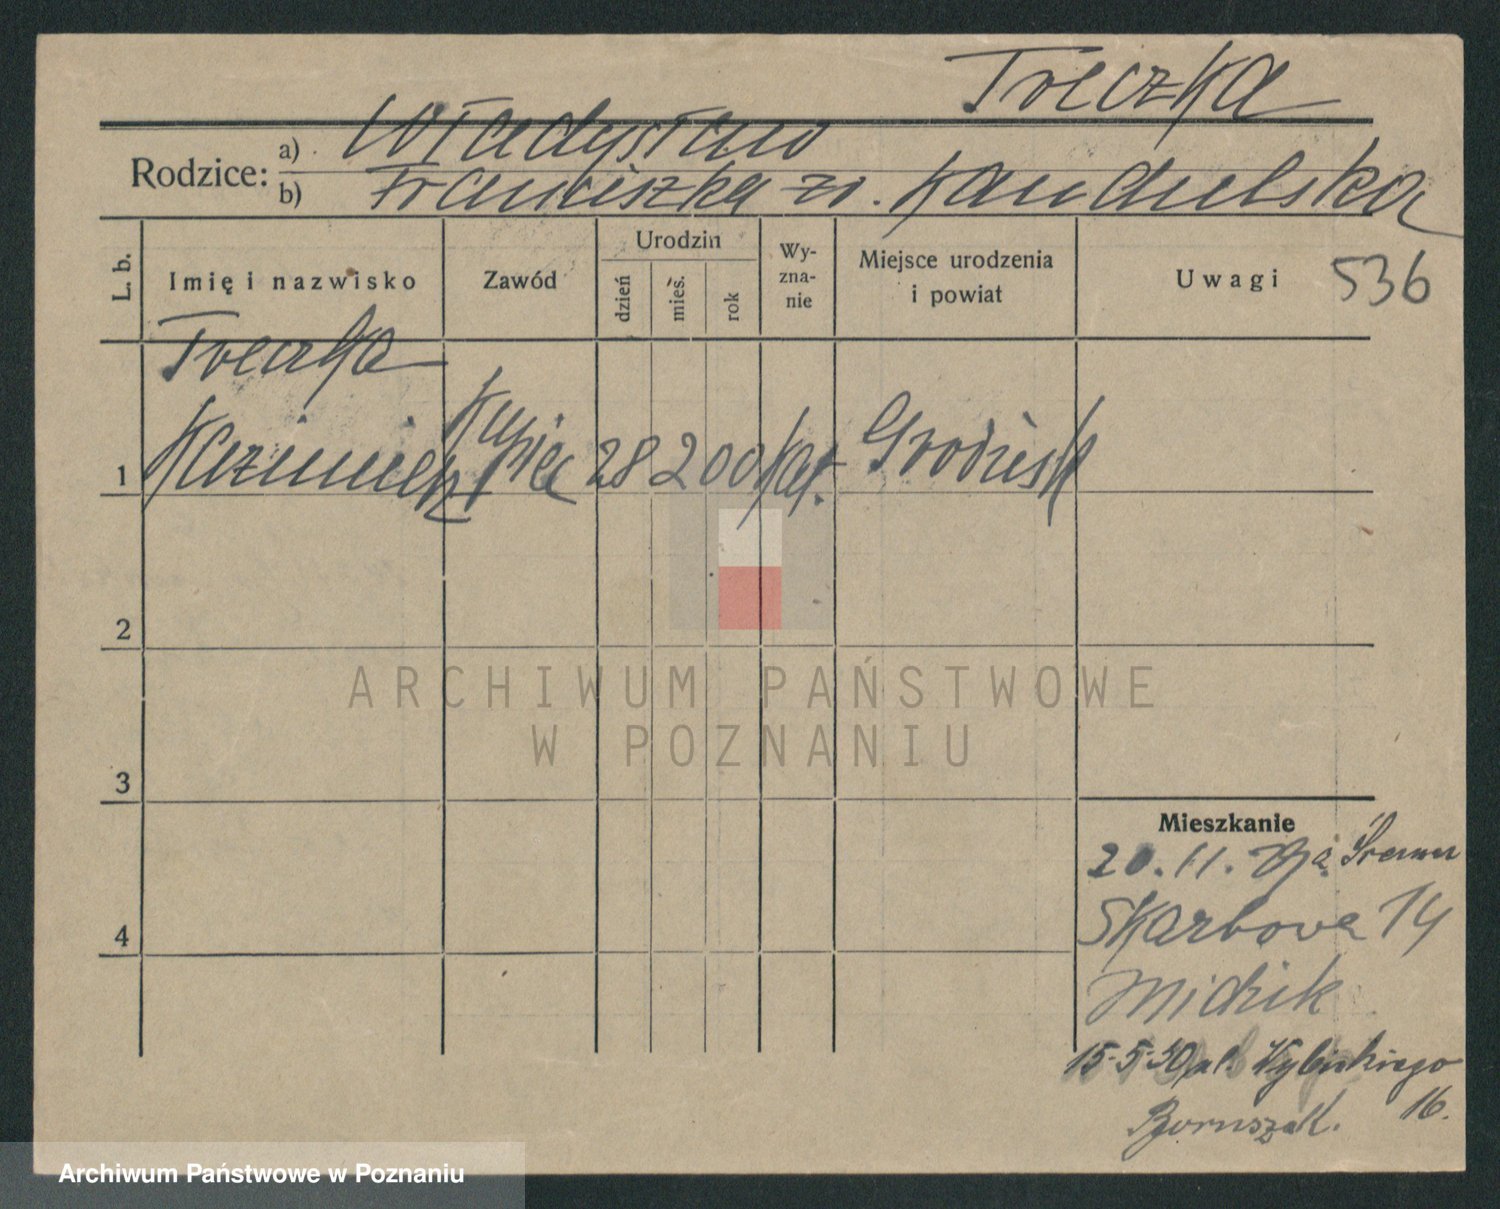 Treczka
Rodzice: a) Władysław
b) Franciszka z. Kandulska
L. b.
Imię i nazwisko
Zawód
Urodzin
dzień
mieś.
rok
Wy-
zna-
nie
Miejsce urodzenia
i powiat
Uwagi
536
Treczka
1 Kazimierz Kupiec 28 2 00 kat. Grodzisk
2
3
4
Mieszkanie
20. 11.
Skarbowa 14
15.5.30 pl. Wybickiego
16.
ARCHIWUM PAŃSTWOWE
W POZNANIU
Archiwum Państwowe w Poznaniu